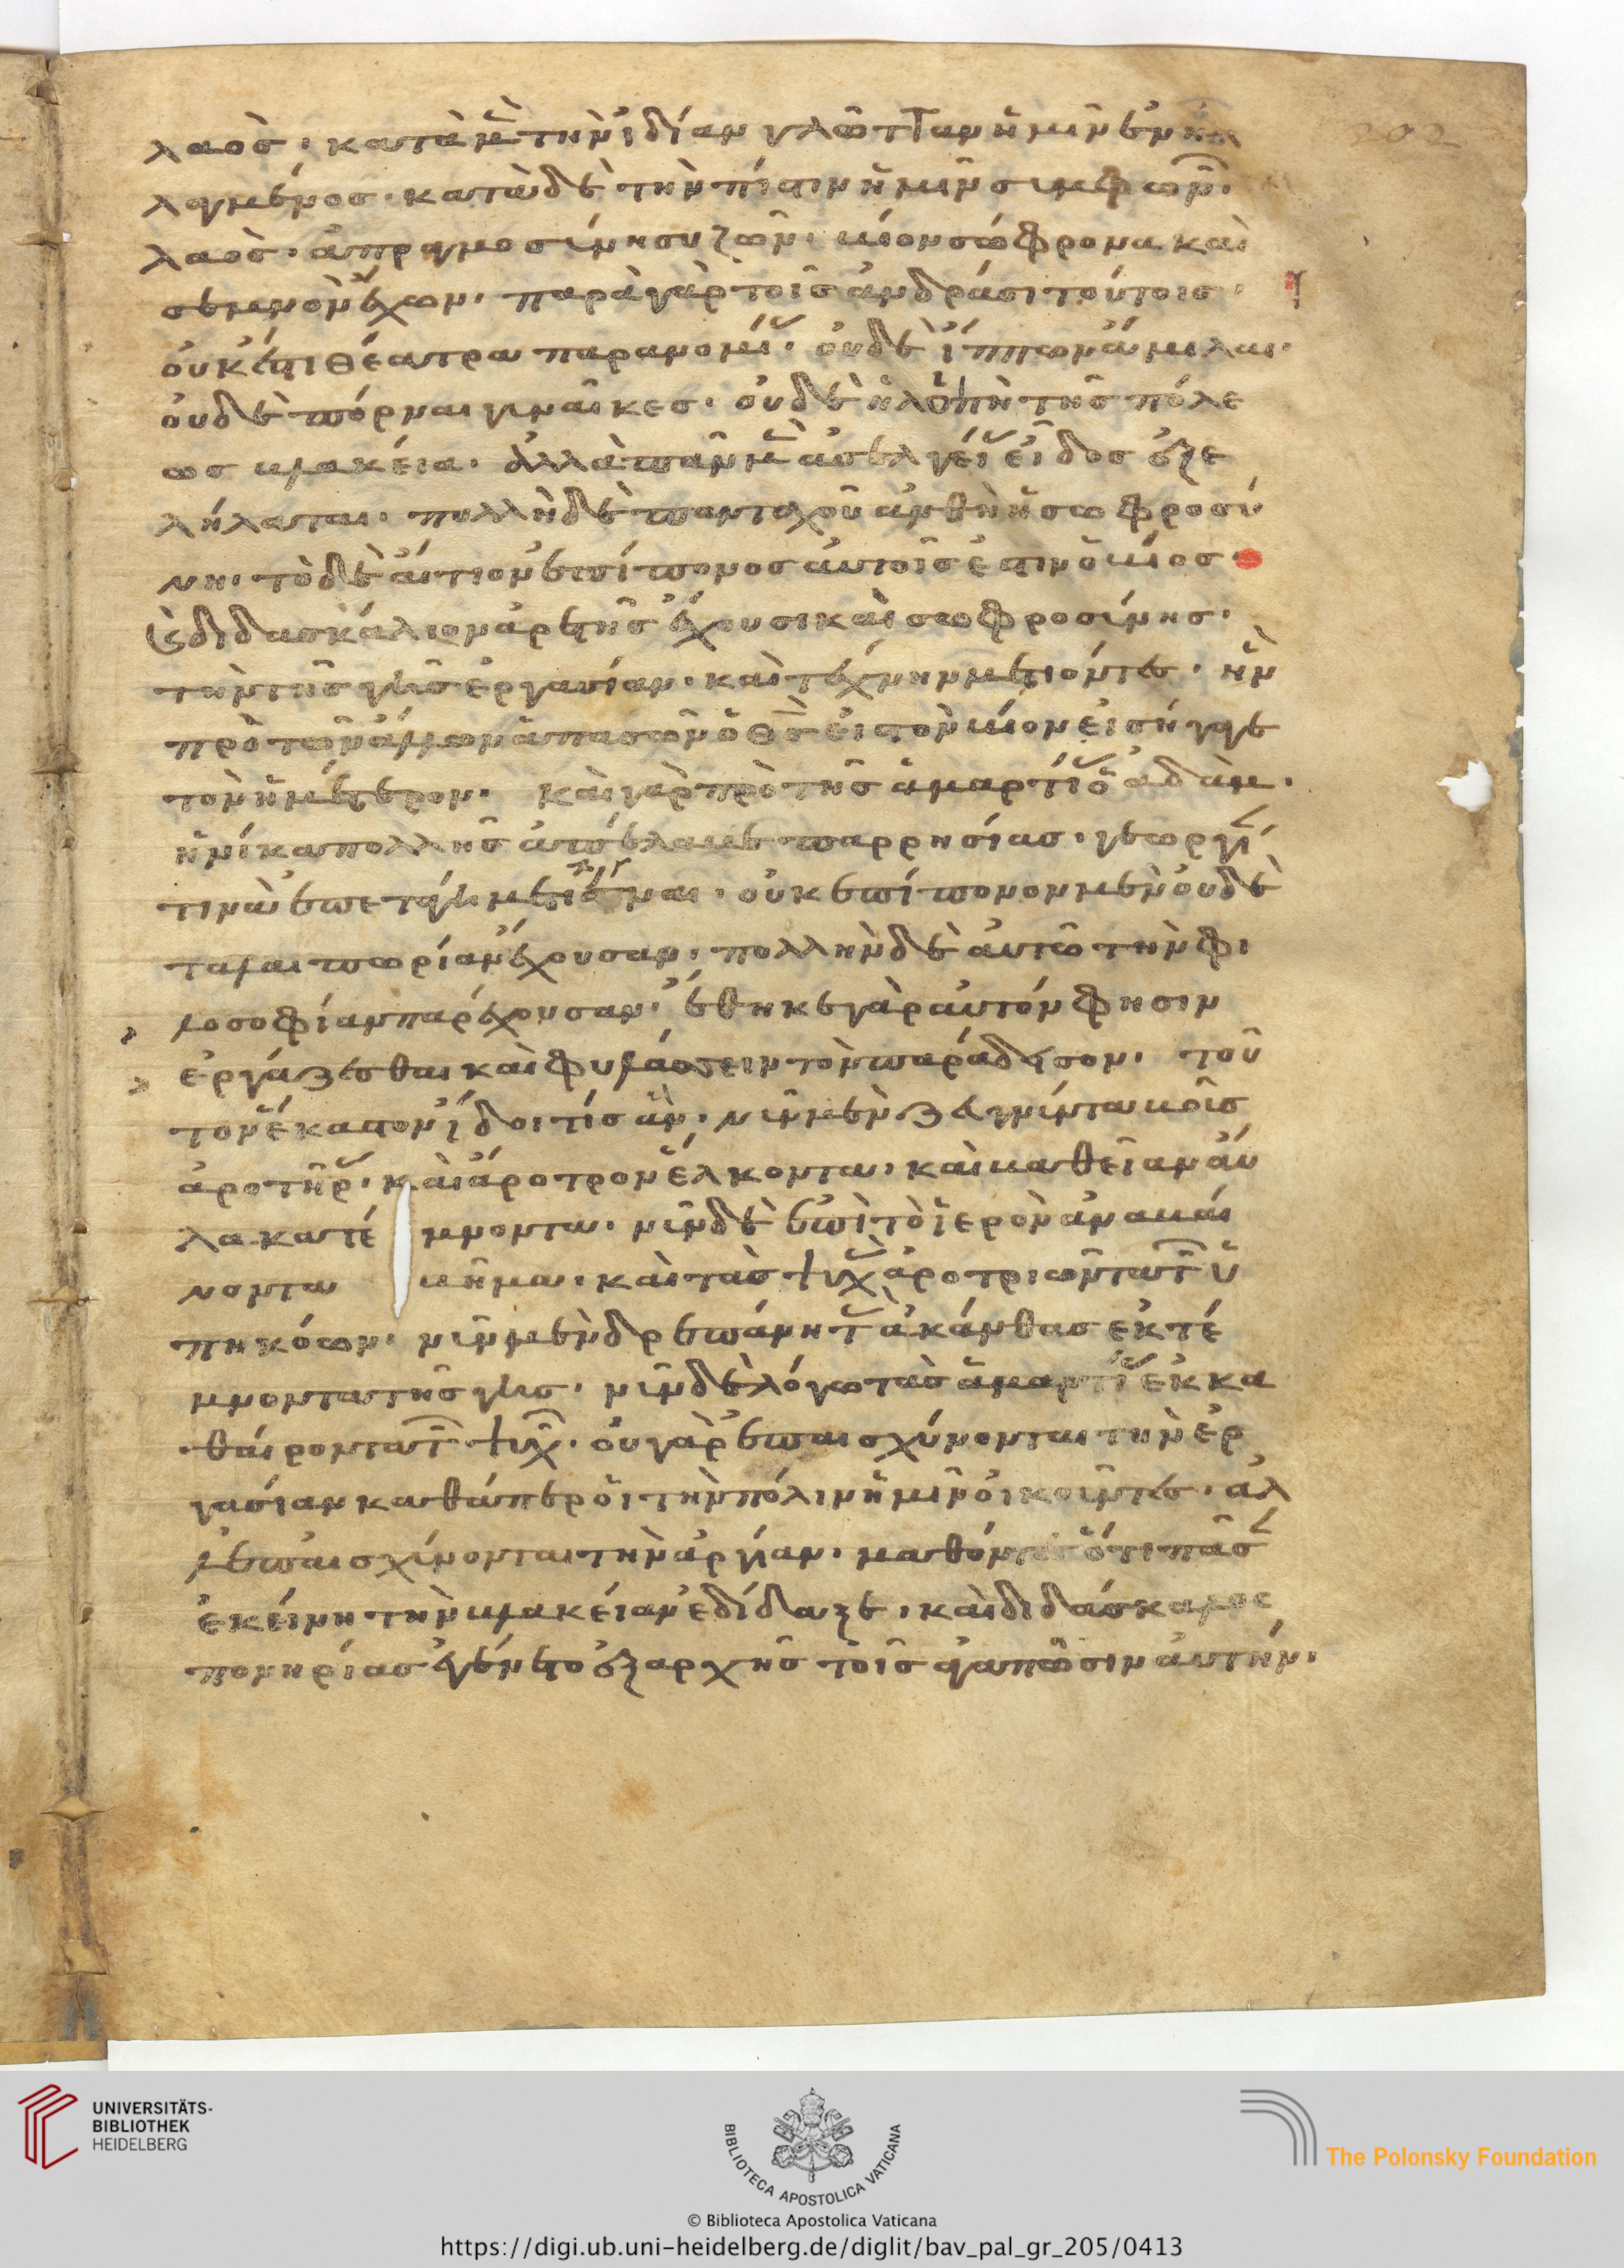 202
λαὸσ· κατὰ μ̀ τὴν ἰδίαν γλῶτταν ἡμῖν ἐνηλ
λαγμένος· κατὰ δὲ τὴν πίστιν ἡμῖν συμφων͂·
λαὸσ· ἀπραγμοσύνη συζῶν· βίον σώφρονα καὶ
σεμνὸν ἔχων· παρὰ γὰρ τοῖσ ἀνδράσι τούτοισ·
οὐκ ἔστι θέατρα παρανομί· οὐδὲ ἵππων ἅμιλλαι·
οὐδὲ πόρναι γυναῖκεσ· οὐδὲ ἡ λοιπὴ τῆσ πόλε
ωσ βλακεία· ἀλλὰ πᾶν μ̀ ἀσελγεί εἶδοσ ἐξε
λήλαται· πολλὴ δὲ πανταχοῦ ἀνθῆ ἡ σωφροσύ
νη· τὸ δὲ αἴτιον ἐπίπονοσ αὐτοῖσ ἐστιν ὁ βίοσ·
ϗ διδασκάλιον ἀρετῆσ ἔχουσι καὶ σωφροσύνησ·
τὴν τῆσ γῆσ ἐργασίαν· καὶ τέχνην μετιόντεσ· ἣν
πρὸ τῶν ἄλλων ἁπασῶν ὁ θσ̀ εἰσ τὸν βίον εἰσήγαγε
τὸν ἡμέτερον· καὶ γὰρ πρὸ τῆσ ἁμαρτί ὁ ἀδὰμ·
ἡνίκα πολλῆσ ἀπέλαυε παρρησίασ· γεωργί
τινὰ ἐπετάγη μετιέναι· οὐκ ἐπίπονον μὲν οὐδὲ
ταλαιπωρίαν ἔχουσαν· πολλὴν δὲ αὐτῶ τὴν φι
λοσοφίαν παρέχουσαν· ἔθηκε γὰρ αὐτόν φησιν
ἐργάζεσθαι καὶ φυλάσσειν τὸν παράδεισον· τού
τον ἕκαστον ἴδοι τίσ ἂν· νῦν μὲν ζευγνύντα βοῦσ
ἀροτῆρ· καὶ ἄροτρον ἕλκοντα· καὶ βαθεῖαν αὔ
λακα τέμνοντα· νῦν δὲ ἐπὶ τὸ ἱερὸν ἀναβαί
νοντα βῆμα· καὶ τὰσ ψυχ ἀροτριῶντα τ͂ ὑ
πηκόων· νῦν μὲν δρεπάνη τ ἀκάνθασ ἐκτέ
μνοντα τῆσ γῆσ· νῦν δὲ λόγω τὰσ ἁμαρτί ἐκκα
θαίροντα τ͂ ψυχ͂· οὐ γὰρ ἐπαισχύνονται τὴν ἐρ
γασίαν καθάπερ οἱ τὴν πόλιν ἡμῖν οἰκοῦντεσ· ἀλ
λ ἐπαισχύνονται τὴν ἀργίαν· μαθόντεσ ὅτι πᾶσ
ἐκείνη τὴν βλακείαν ἐδίδαξε· καὶ διδάσκαλοσ
πονηρίασ ἐγένετο ἐξαρχῆσ τοῖσ ἀγαπῶσιν αὐτήν·
UNIVERSITÄTS-
BIBLIOTHEK
HEIDELBERG
BIBLIOTECA APOSTOLICA VATICANA
The Polonsky Foundation
© Biblioteca Apostolica Vaticana
https://digi.ub.uni-heidelberg.de/diglit/bav_pal_gr_205/0413